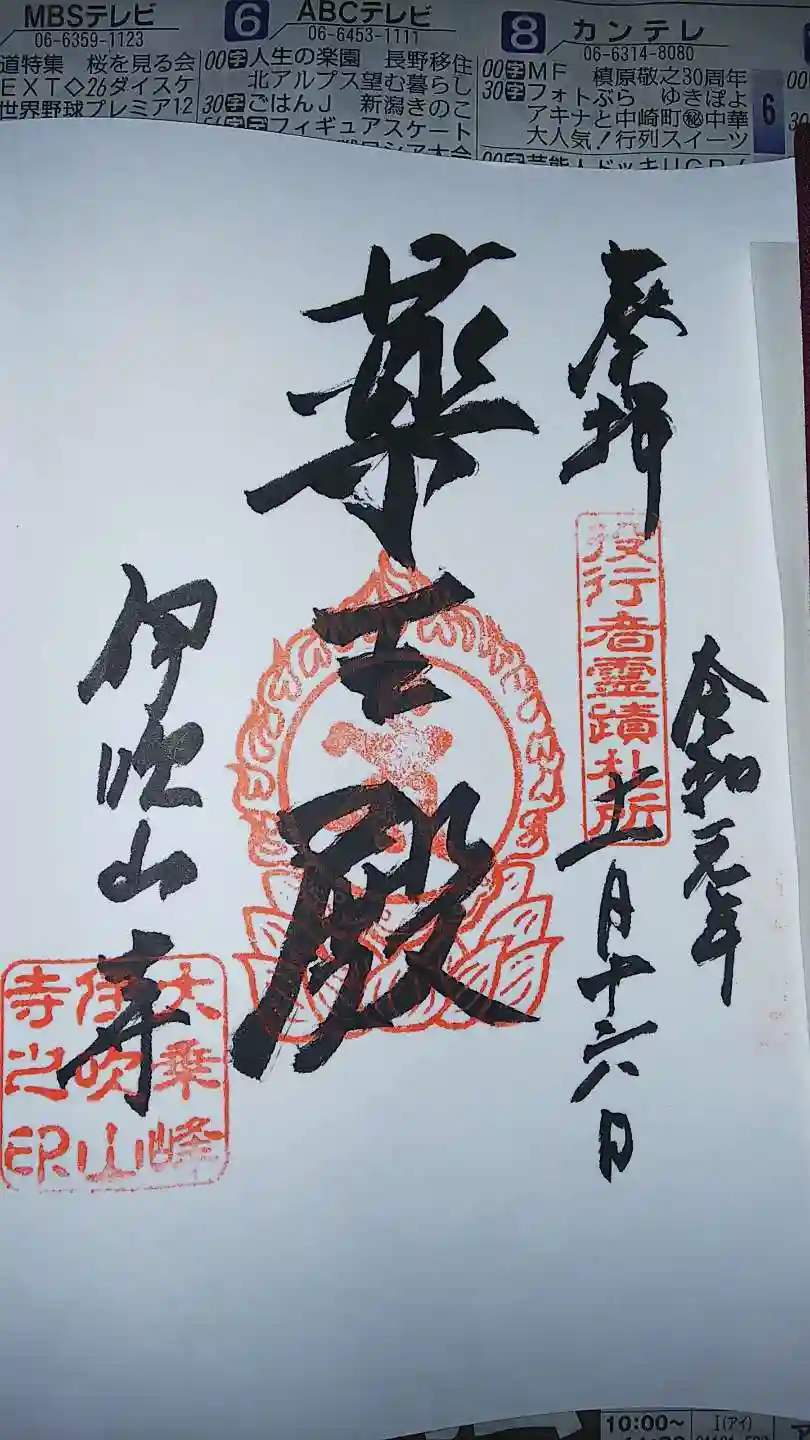 MBSテレビ
06-6359-1123
道特集 桜を見る会
EXT◇26ダイスケ
世界野球プレミア12
6 ABCテレビ
06-6453-1111
00字人生の楽園 長野移住
北アルプス望む暮らし
30字ごはんJ 新潟きのこ
字字フィギュアスケート
8 カンテレ
06-6314-8080
00字MF 槙原敬之30周年
30字フォトぶら ゆきぽよ
アキナと中崎町㊙中華
大人気!行列スイーツ
6
奉拝
役行者霊蹟札所
令和元年
十一月十六日
薬王殿
伊吹山寺
大乗峰
伊吹山
寺之印
10:00~
I(アイ)